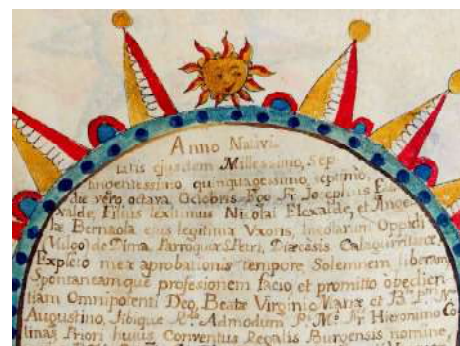 Anno Nativi-
tatis ejusdem Millessimo, Sep
tingentessimo quinquagessimo, septimo,
die vero octava, Octobris Ego Fr. Josephus
xalde, Filius lextimus Nicolai Elexalde, et Ange
læ Bernaola ejus legitima Uxoris, Incolarum Oppidi
(Vulgo) de Dima Parroquiæ S. Petri, Diæcesis Calaguritanæ,
Expleto meæ aprobationis tempore, Solemnem liberam
Spontaneamque profesionem facio et promitto obedien
tiam Omnipotenti Deo, Beatæ Virginio Mariæ et B.
Augustino, tibique Admodum P. M. Fr. Hieronimo Co
linas Priori hujus Conventus Regalis Burgensis nomine,